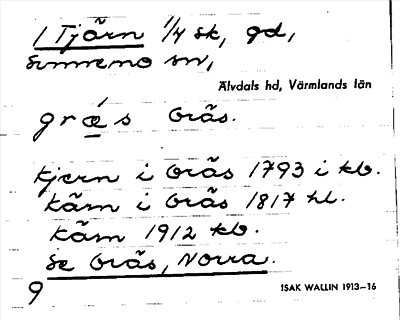 1 Tjärn 1/4 sk, gd,
Sunnemo sn,
Älvdals hd, Värmlands län
græ´s Gräs.
kjern i Gräs 1793 i kb.
käm i Gräs 1817 hl.
käm 1912 kb.
Se Gräs, Norra.
9
ISAK WALLIN 1913–16